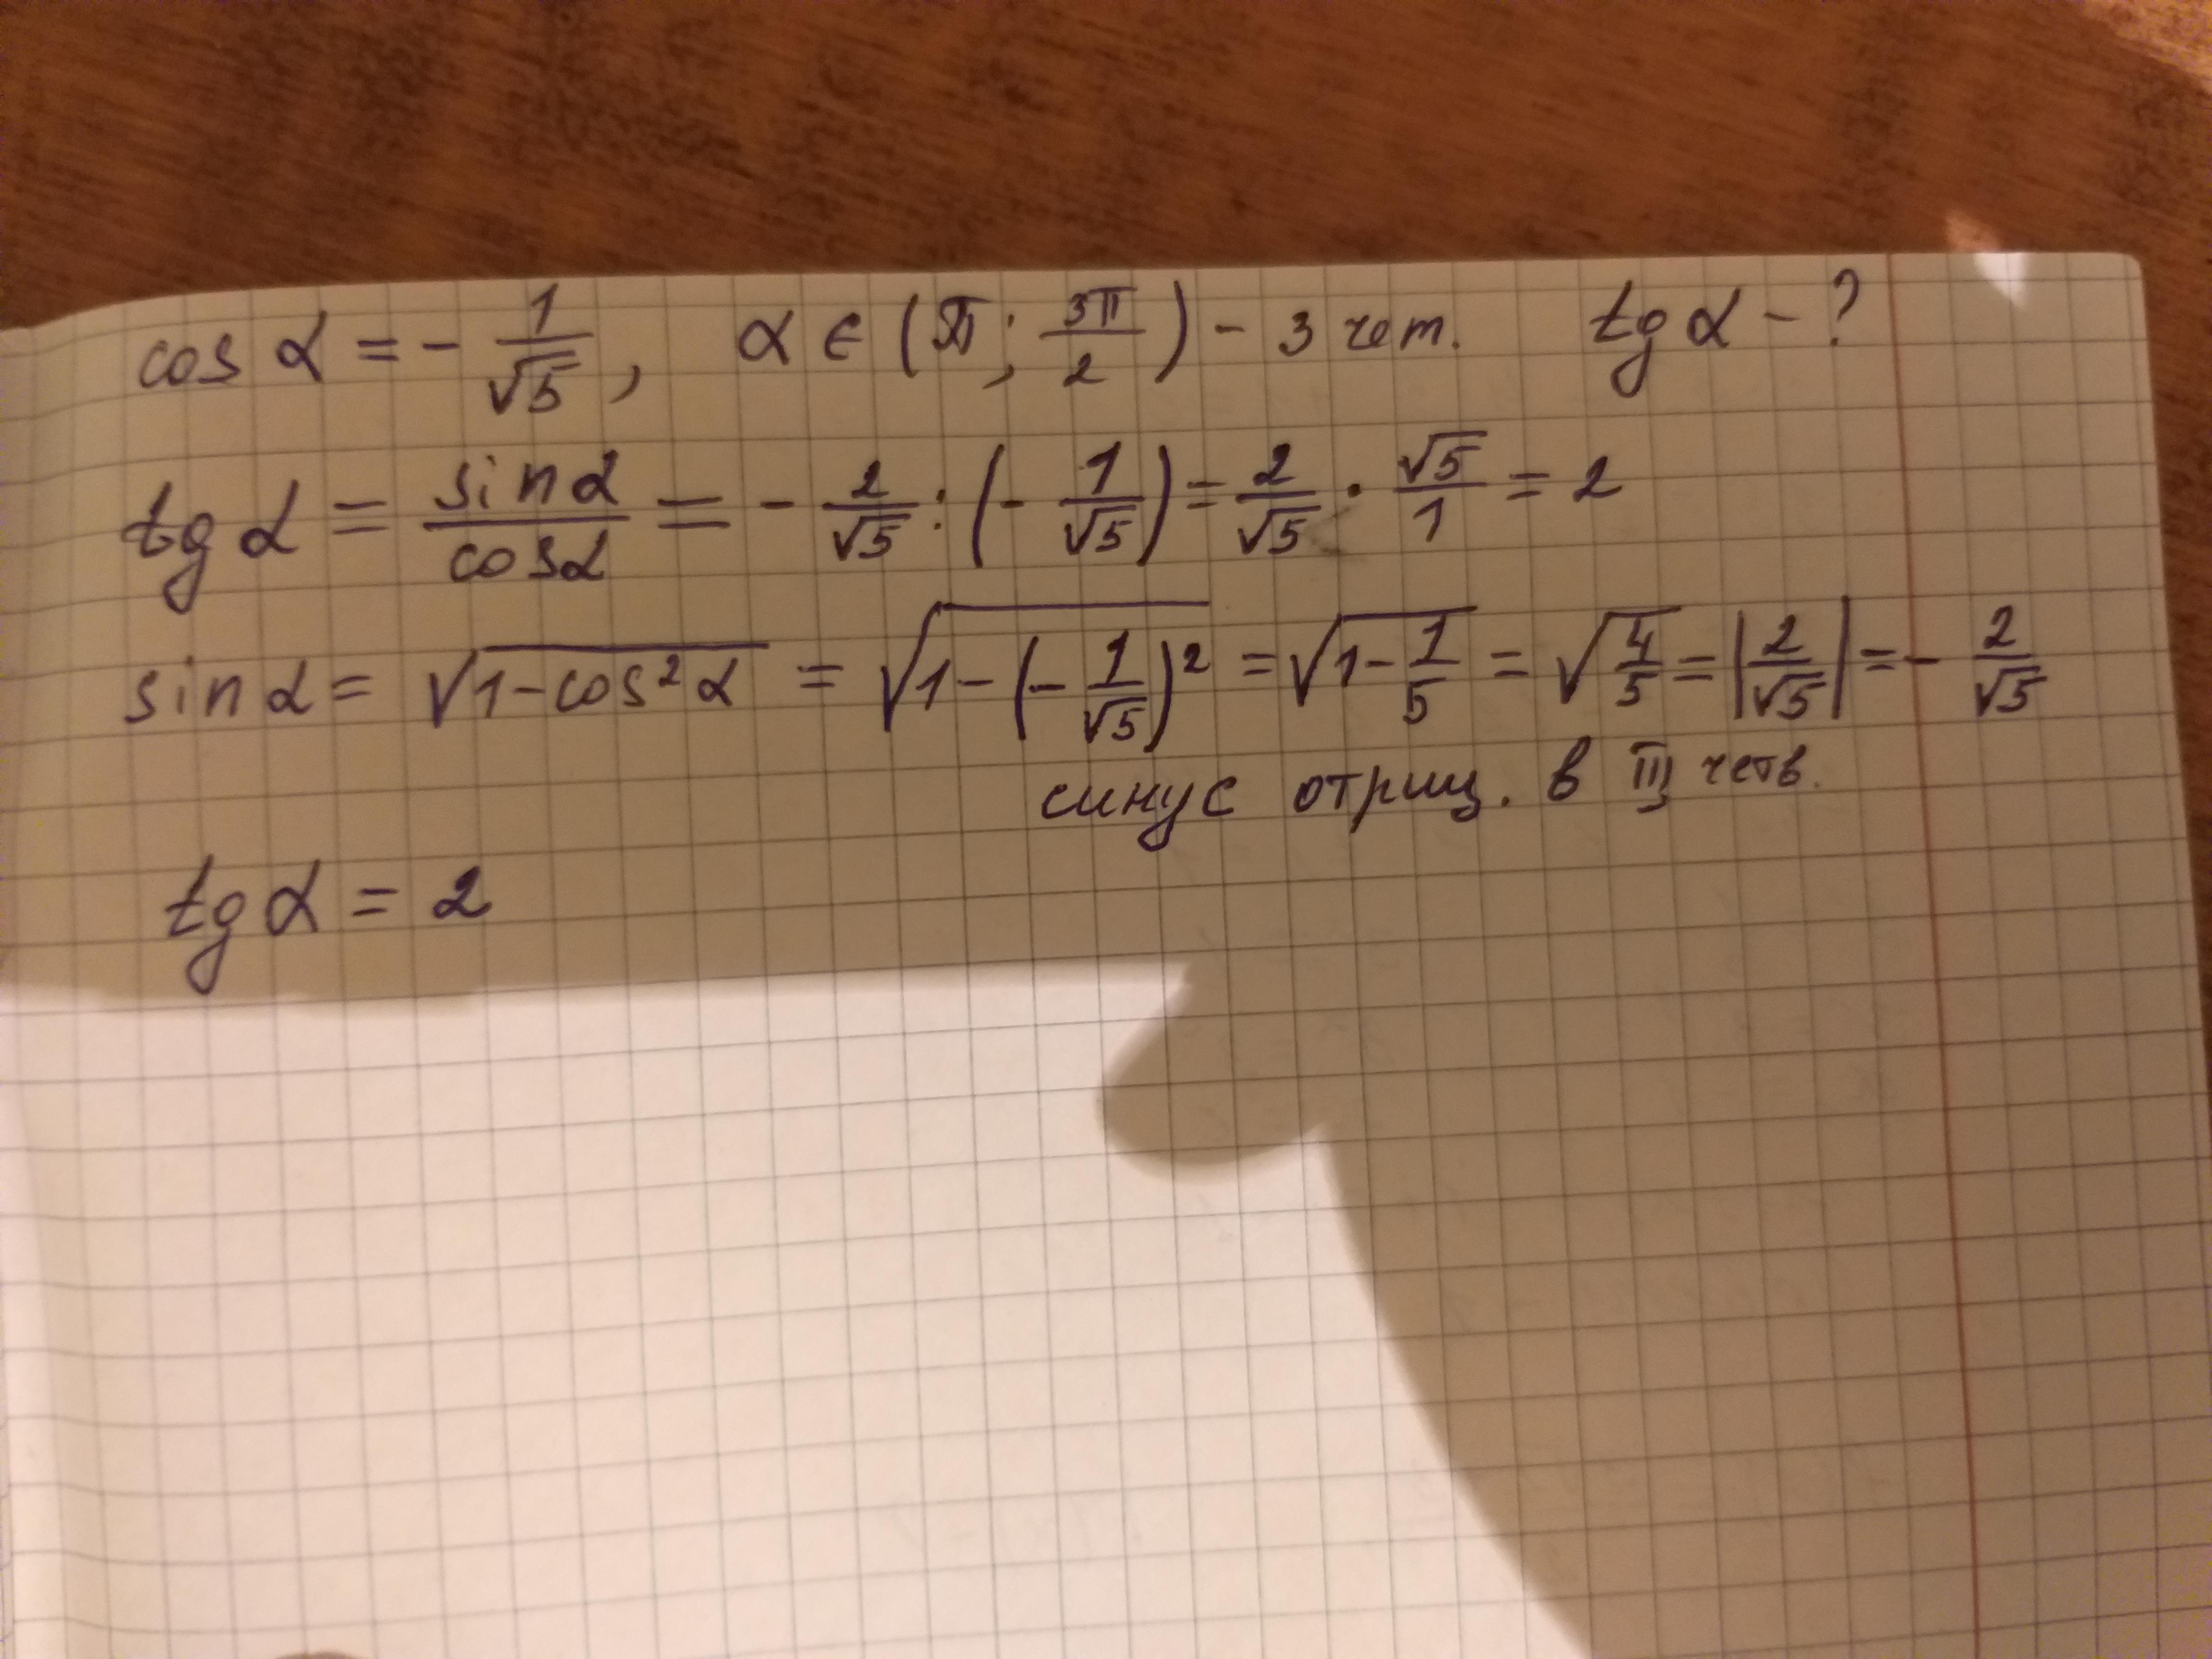 cos α = - 1/√5, α ∈ (π; 3π/2) - 3 чет. tg α - ?
tg α = sin α / cos α = - 2/√5 : (- 1/√5) = 2/√5 · √5/1 = 2
sin α = √(1-cos² α) = √(1-(- 1/√5)²) = √(1- 1/5) = √(4/5) = |2/√5| = - 2/√5
синус отриц. в III четв.
tg α = 2